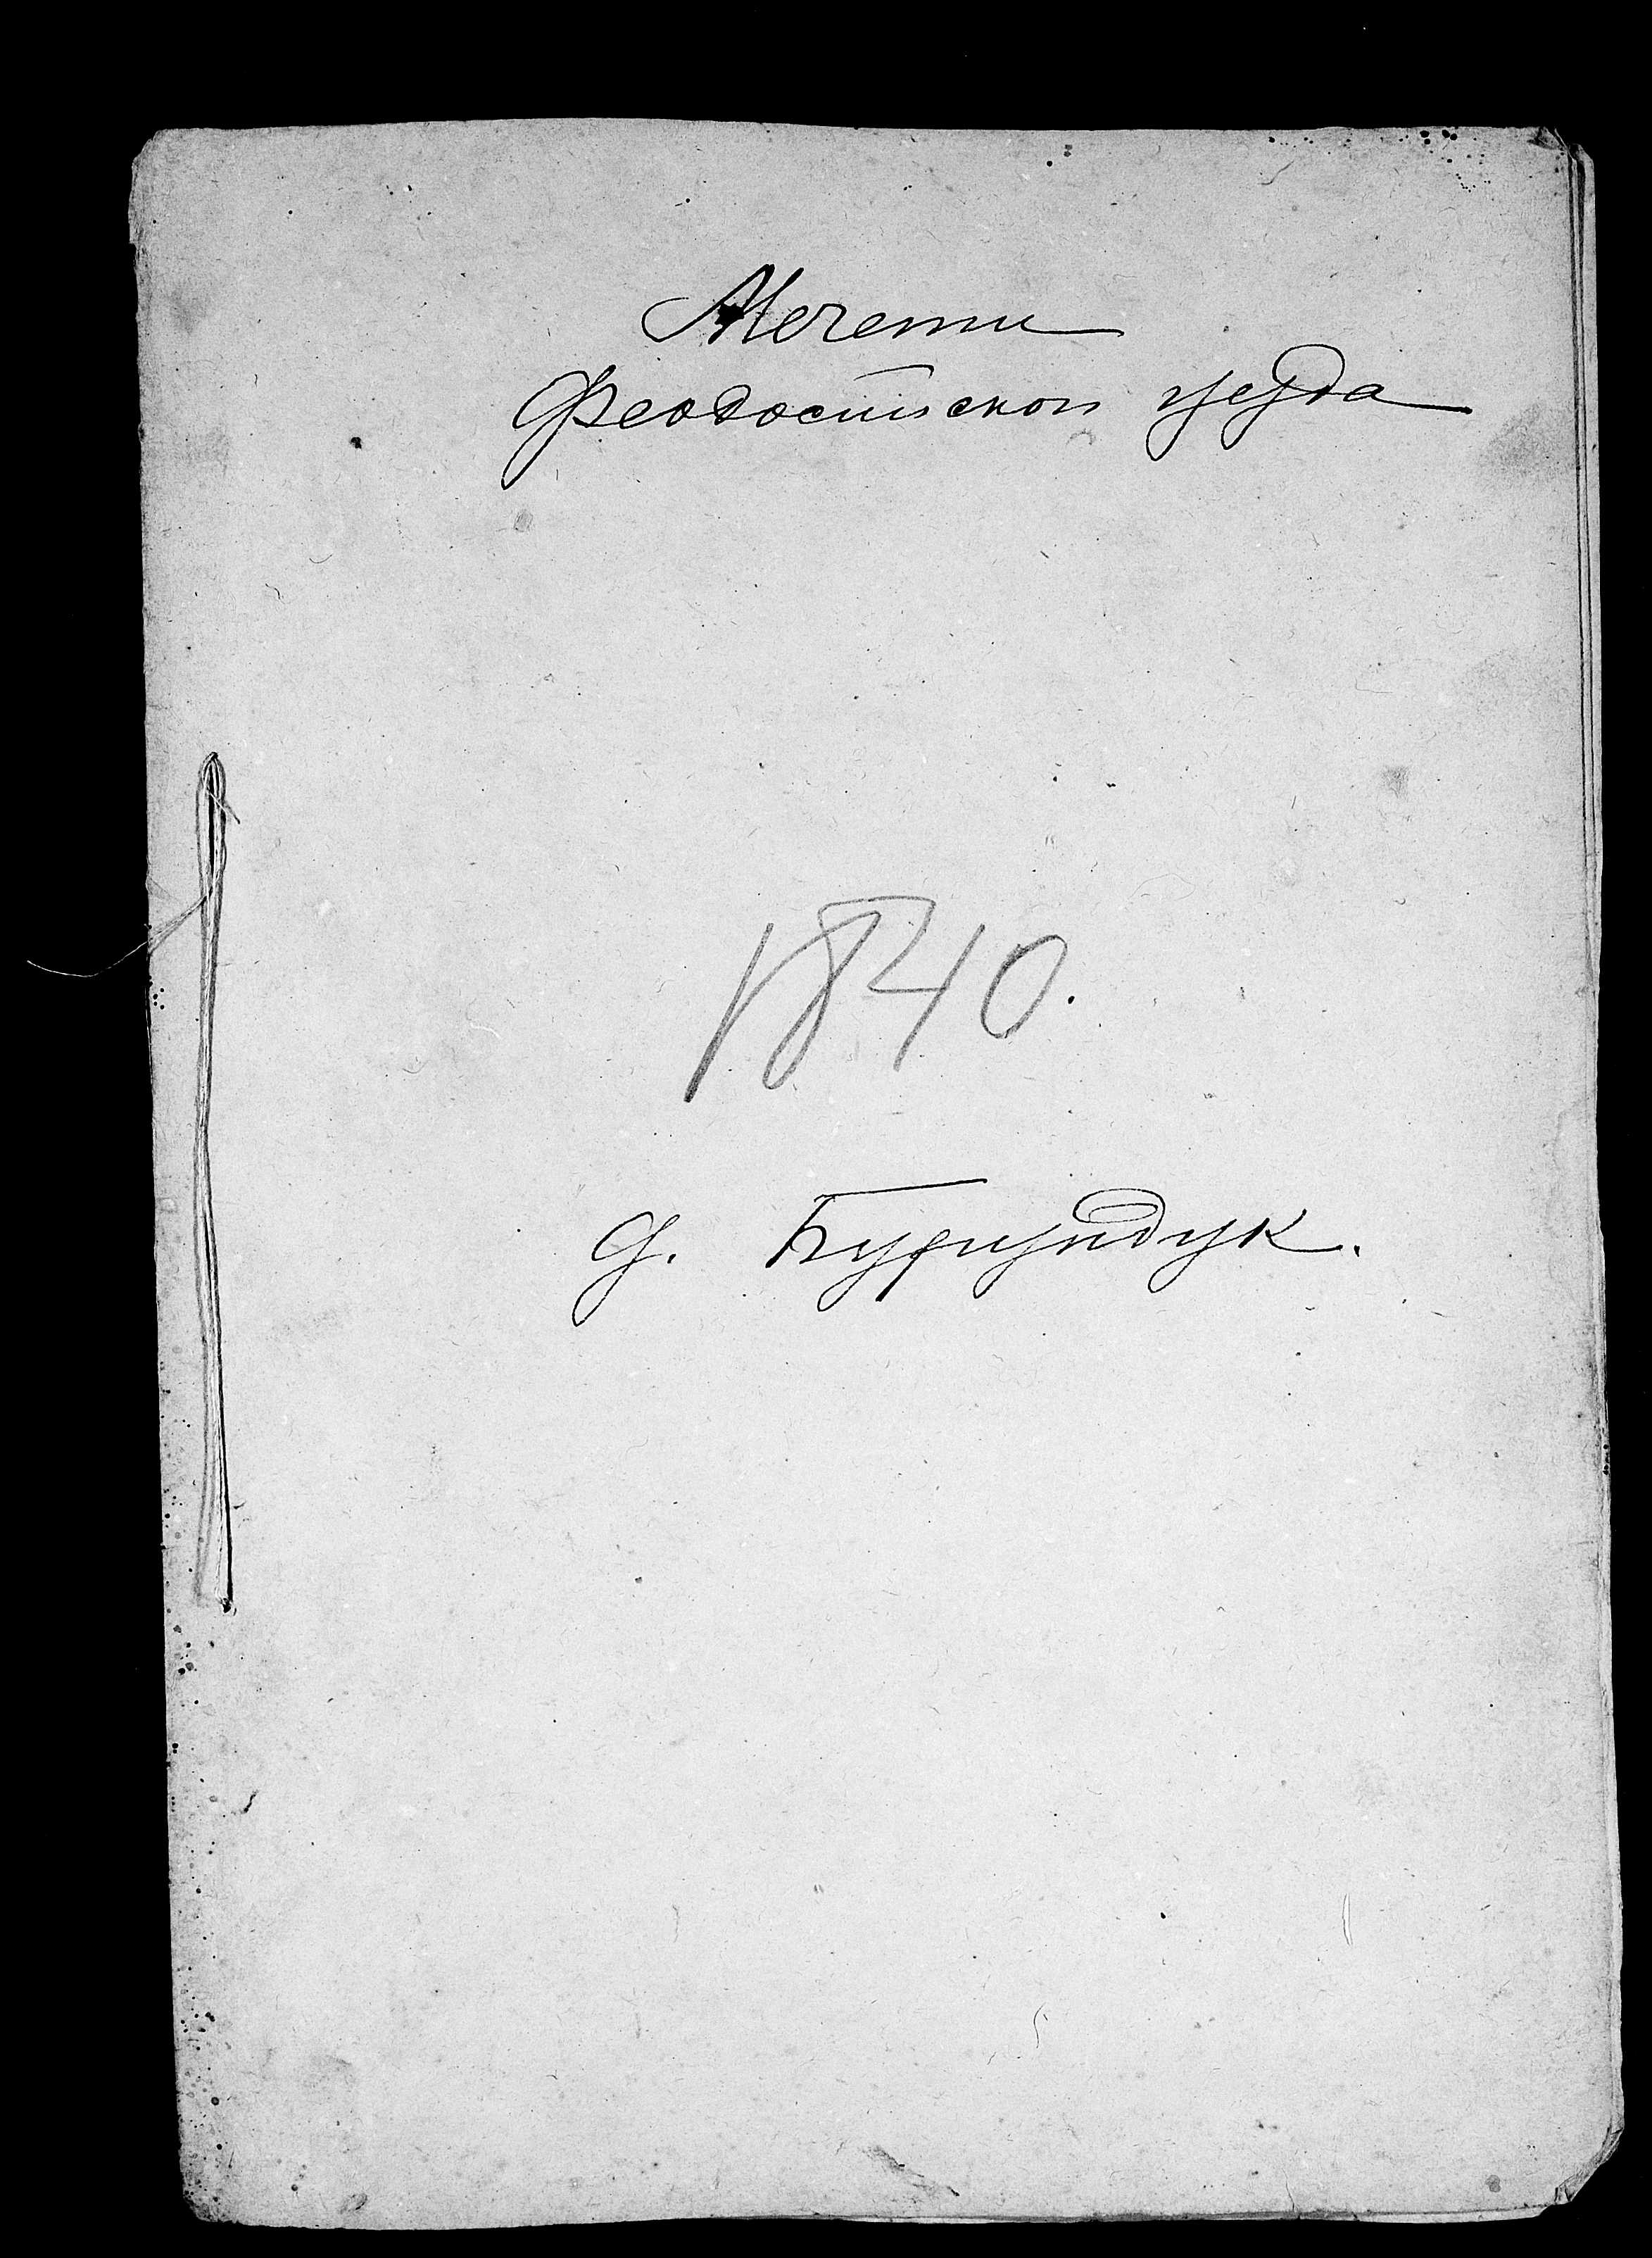 Мечети
Феодосийскои уезда
1840.
д. Бурундук.